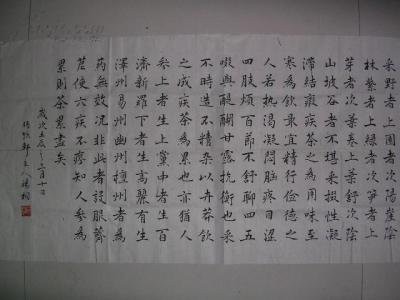 采野者上園者次陽崖陰
林紫者上綠者次笋者上
芽者次葉卷上葉舒次陰
山坡谷者不堪采掇性凝
滯結瘕疾茶之為用味至
寒為飲最宜精行儉德之
人若热渴凝悶腦疼目澀
四肢煩百節不舒聊四五
啜與醍醐甘露抗衡也采
不時造不精杂以卉莽飲
之成疾茶為累也亦猶人
參上者生上黨中者生百
濟新羅下者生高麗有生
澤州易州幽州檀州者為
药無效况非此者設服薺
苨使六疾不瘳知人參為
累則茶累盡矣
歲次壬辰月十日
主人